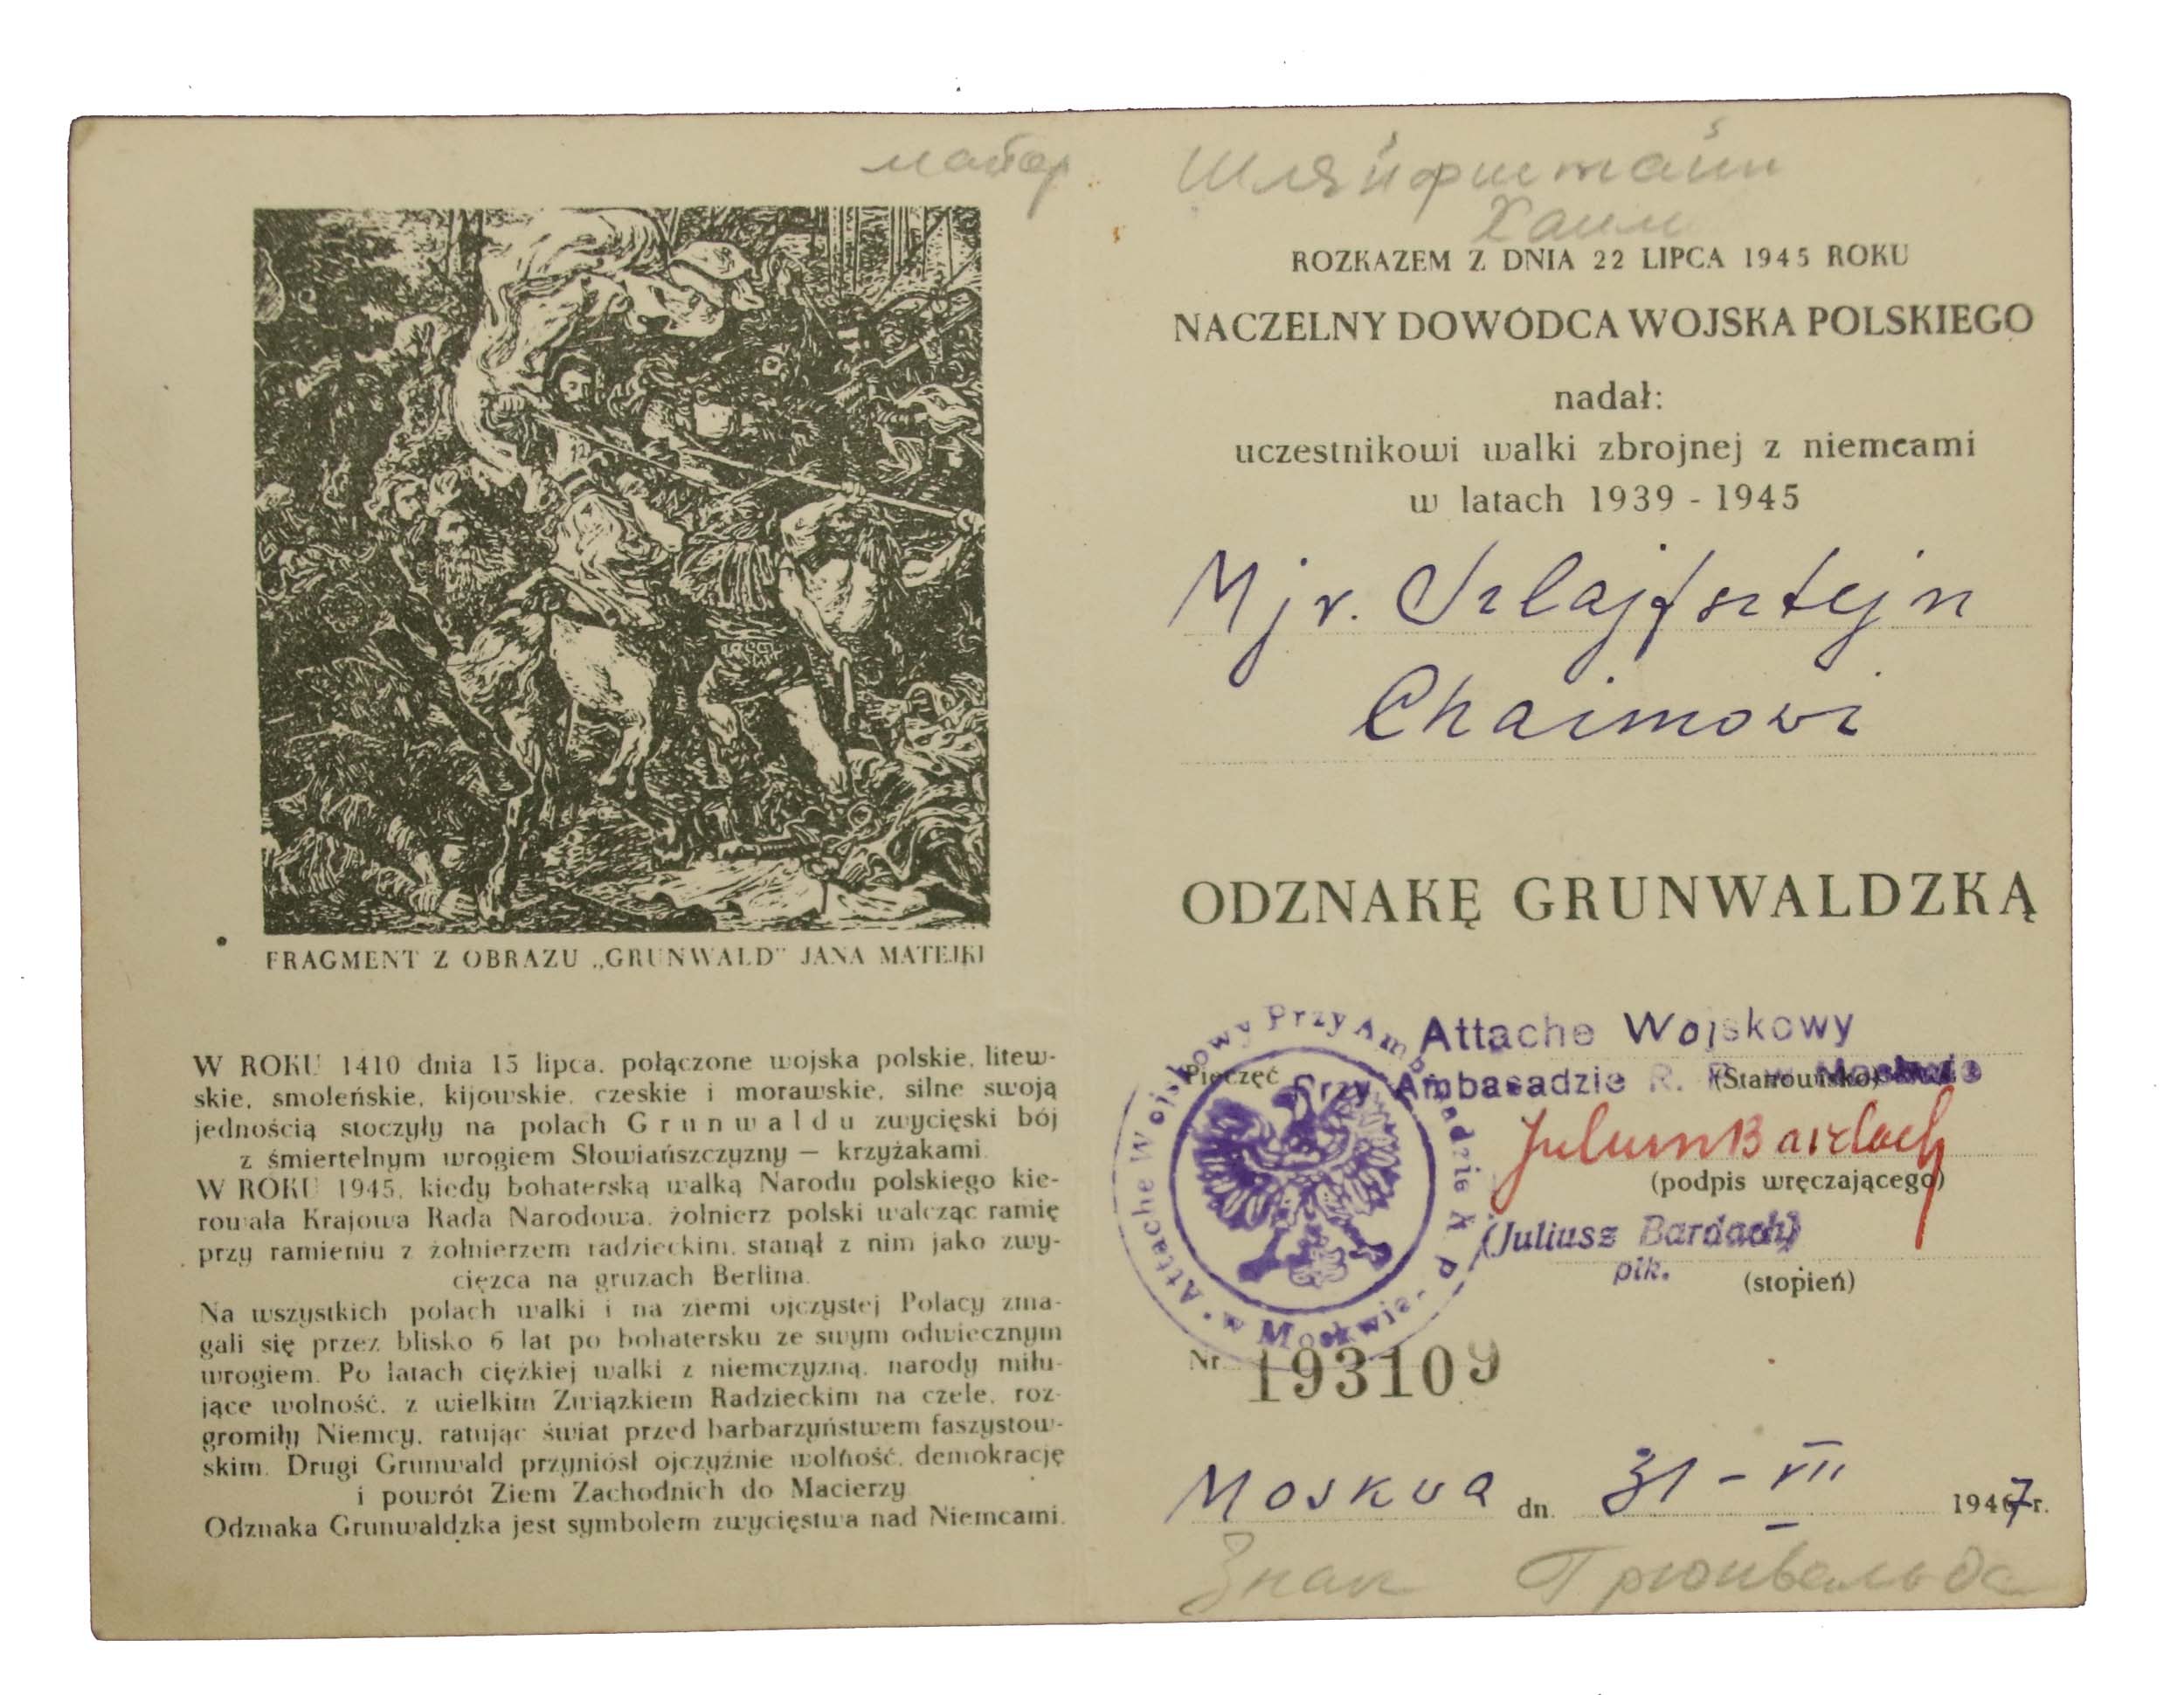 майор
FRAGMENT Z OBRAZU „GRUNWALD" JANA MATEJKI
W ROKU 1410 dnia 15 lipca, połączone wojska polskie, litew-
skie, smoleńskie, kijowskie, czeskie i morawskie, silne swoją
jednością stoczyły na polach Grunwaldu zwycięski bój
z śmiertelnym wrogiem Słowiańszczyzny — krzyżakami.
W ROKU 1945, kiedy bohaterską walką Narodu polskiego kie-
rowała Krajowa Rada Narodowa, żołnierz polski walcząc ramię
przy ramieniu z żołnierzem radzieckim, stanął z nim jako zwy-
cięzca na gruzach Berlina.
Na wszystkich polach walki i na ziemi ojczystej Polacy zma-
gali się przez blisko 6 lat po bohatersku ze swym odwiecznym
wrogiem. Po latach ciężkiej walki z niemczyzną, narody miłu-
jące wolność, z wielkim Związkiem Radzieckim na czele, roz-
gromiły Niemcy, ratując świat przed barbarzyństwem faszystow-
skim. Drugi Grunwald przyniósł ojczyźnie wolność, demokrację
i powrót Ziem Zachodnich do Macierzy
Odznaka Grunwaldzka jest symbolem zwycięstwa nad Niemcami.
Шляйфштайн
Хаим
ROZKAZEM Z DNIA 22 LIPCA 1945 ROKU
NACZELNY DOWÓDCA WOJSKA POLSKIEGO
nadał:
uczestnikowi walki zbrojnej z niemcami
w latach 1939 - 1945
Mjr. Szlajfsztejn
Chaimowi
ODZNAKĘ GRUNWALDZKĄ
Attache Wojskowy
Pieczęć
Przy Ambasadzie R. P. w Moskwie
(Stanowisko)
Attache Wojskowy Przy Ambasadzie R P w Moskwie
Juliusz Bardach
(podpis wręczającego)
(Juliusz Bardach)
płk.
(stopień)
Nr. 193109
Moskwa dn. 31 - VII 1947 r.
Знак Грюнвальда